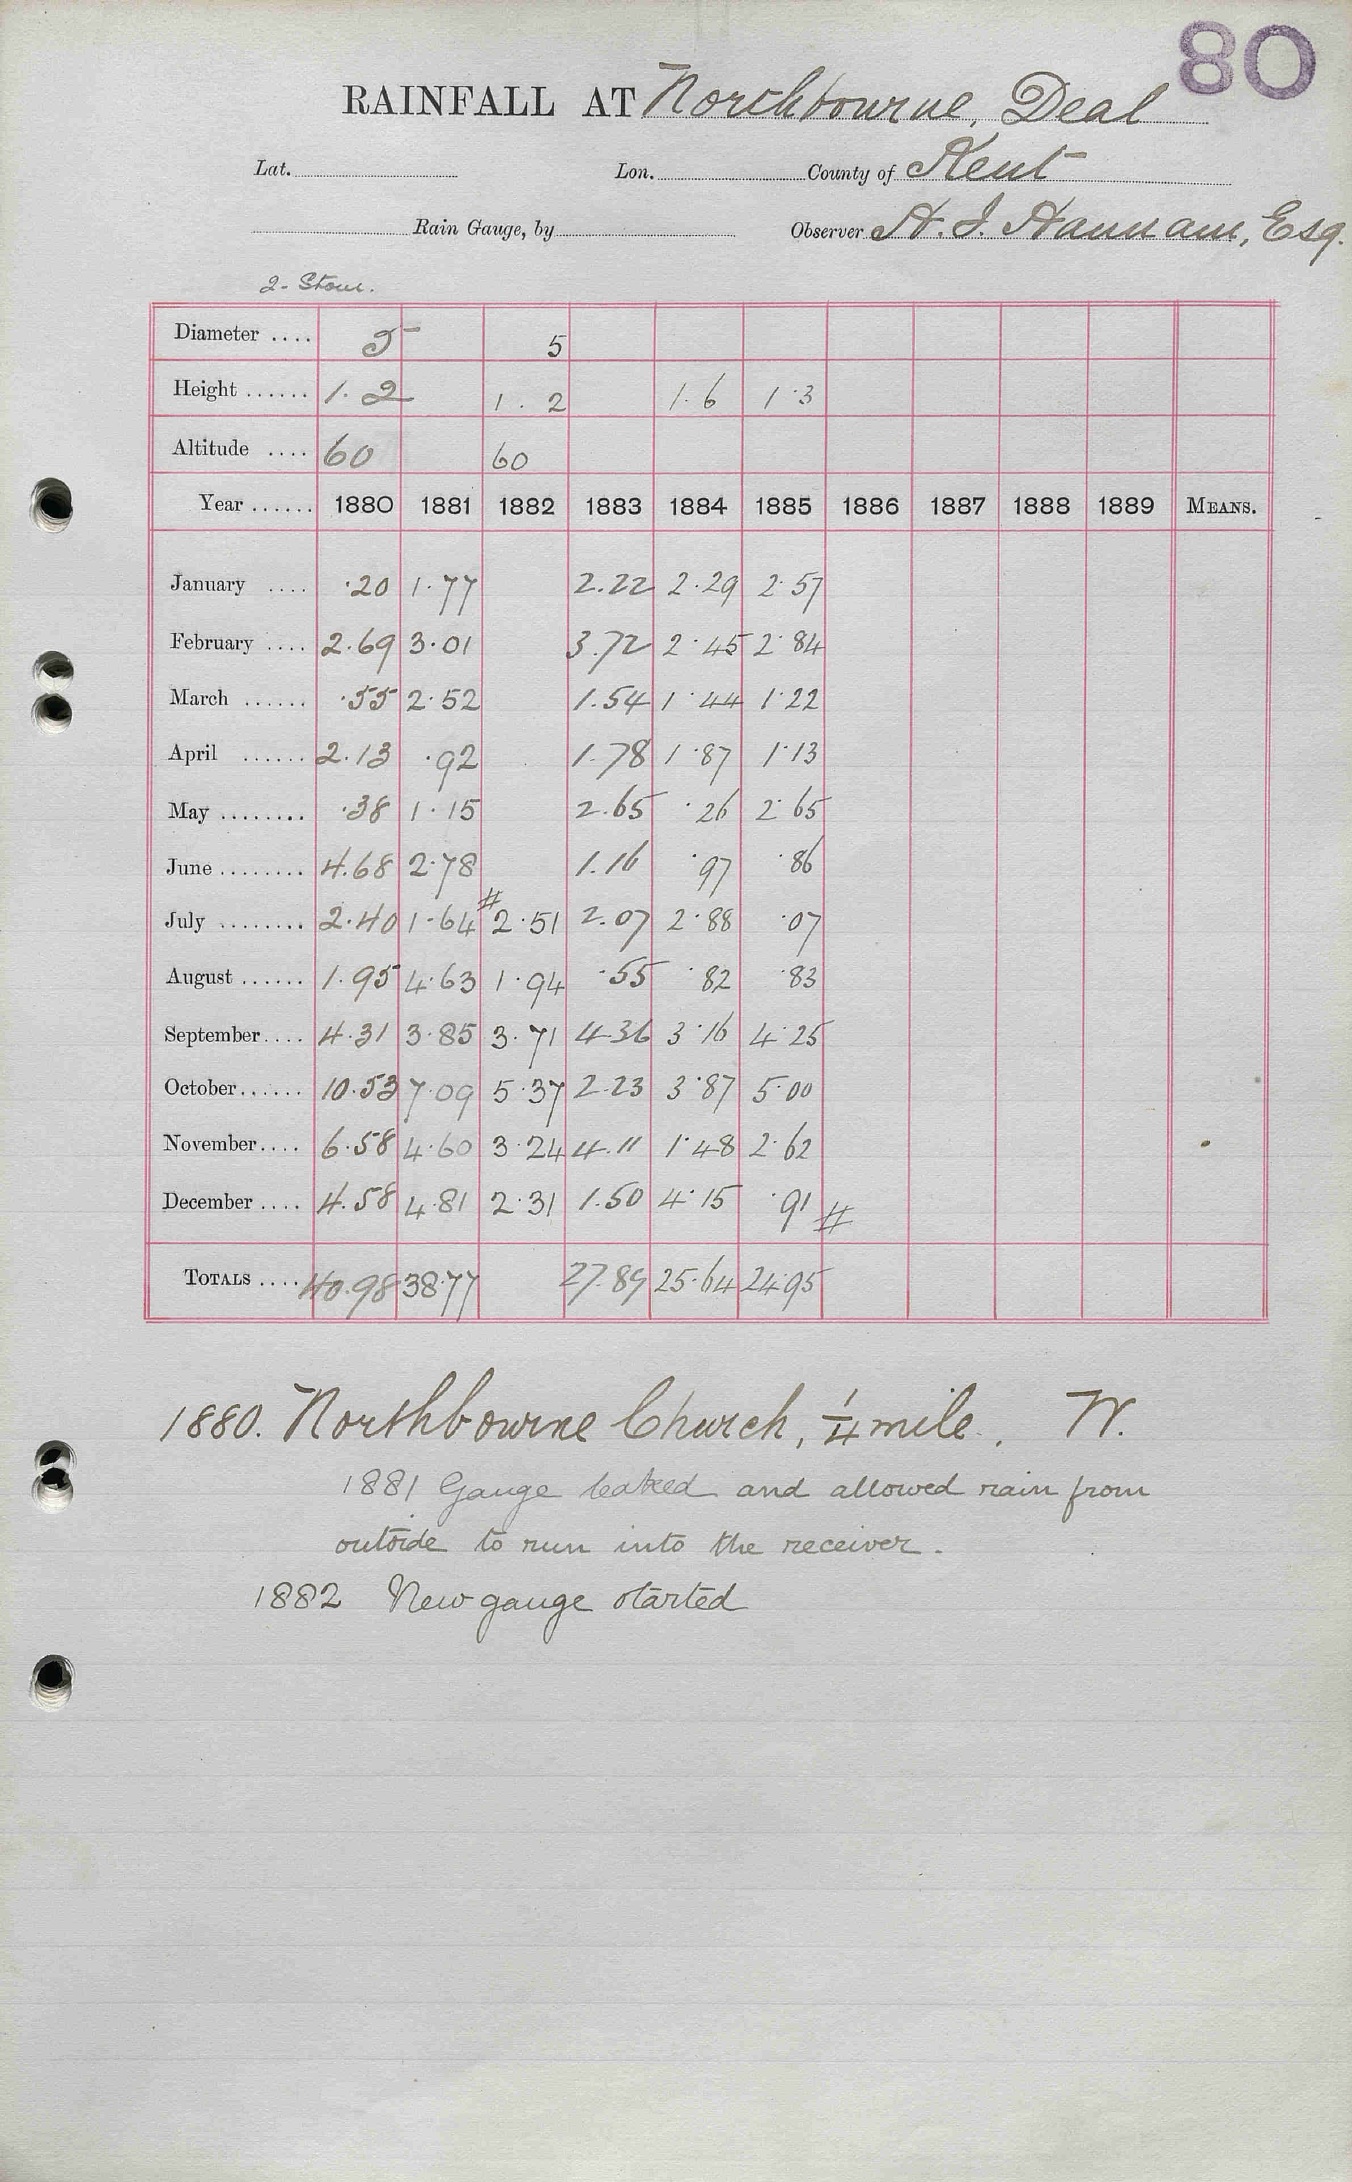 80
RAINFALL AT Northbourne, Deal
Lat. Lon. County of Kent
Rain Gauge, by Observer H. J. Hannam, Esq.
2- Stour.
Diameter .... 5 5
Height ...... 1.2 1.2 1.6 1.3
Altitude .... 60 60
Year ...... 1880 1881 1882 1883 1884 1885 1886 1887 1888 1889 MEANS.
January .... .20 1.77 2.22 2.29 2.57
February .... 2.69 3.01 3.72 2.45 2.84
March ...... .55 2.52 1.54 1.44 1.22
April ...... 2.13 .92 1.78 1.87 1.13
May ........ .38 1.15 2.65 .26 2.65
June ........ 4.68 2.78 1.16 .97 .86
July ........ 2.40 1.64 # 2.51 2.07 2.88 .07
August ...... 1.95 4.63 1.94 .55 .82 .83
September.... 4.31 3.85 3.71 4.36 3.16 4.25
October...... 10.53 7.09 5.37 2.23 3.87 5.00
November.... 6.58 4.60 3.24 4.11 1.48 2.62
December .... 4.58 4.81 2.31 1.50 4.15 .91 #
TOTALS .... 40.98 38.77 27.89 25.64 24.95
1880. Northbourne Church, 1/4 mile. W.
1881 Gauge leaked and allowed rain from
outside to run into the receiver.
1882 New gauge started